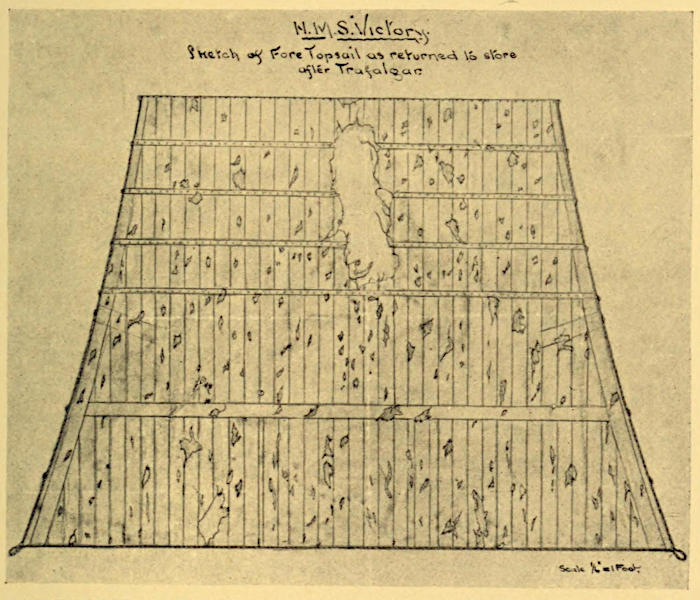 H.M.S. Victory.
Sketch of Fore Topsail as returned to store
after Trafalgar
Scale = 1 Foot.